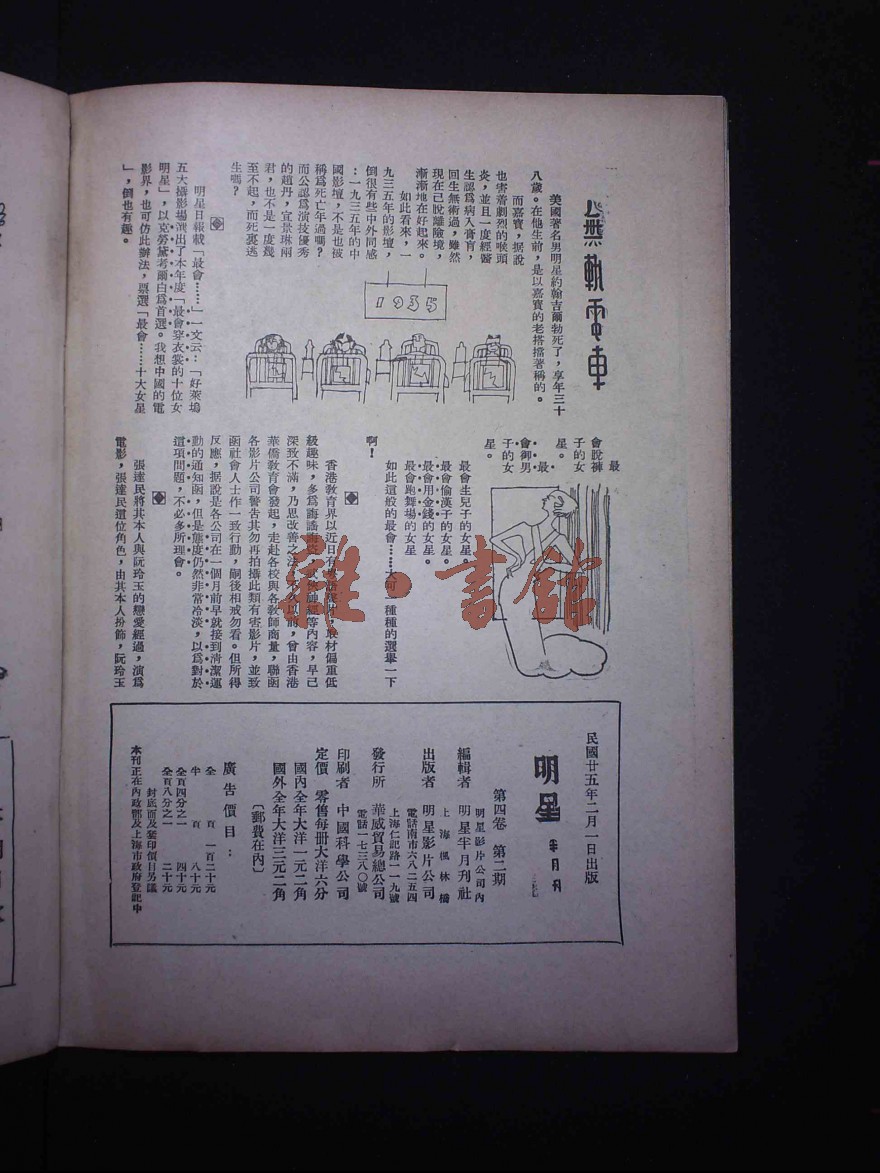 無軌電車
美國著名男明星約翰吉爾勃死了，享年三十
八歲。在他生前，是以嘉寶的老搭擋著稱的。
而嘉寶，据說
也害着劇烈的喉頭
炎，並且一度經醫
生認爲病入膏肓，
回生無術過，雖然
現在已脫離險境，
漸漸地在好起來。
如此看來，一
九三五年的影壇，
倒很有些中外同感
：一九三五年的中
國影壇，不是也被
稱爲死亡年過嗎？
而公認爲演技優秀
的趙丹，宣景琳兩
君，也不是一度幾
至不起，而死裏逃
生嗎？
1935
明星日報載「最會……」一文云：「好萊塢
五大攝影場選出了本年度「最會穿衣裳的十位女
明星」，以克勞黛考爾白爲首選。我想中國的電
影界，也可仿此辦法，票選「最會……十大女星
」，倒也有趣。
最
會脫褲
子的女
星。
最
會御男
子的女
星。
最會生兒子的女星。
最會偷漢子的女星。
最會用金錢的女星。
最會跑舞場的女星
如此這般的最會……大可 種種的選舉一下
啊！
香港敎育界以近日有粵語聲片，取材偏重低
級趣味，多爲誨謠誨盜，
深致不滿，乃思改善之法，不久以前，曾由香港
華僑敎育會發起，走赴各校與各敎師商量，聯函
各影片公司警告其勿再拍攝此類有害影片，並致
函社會人士作一致行動，嗣後相戒勿看。但所得
反應，据說是各公司在一個月前早就接到清潔運
動的通知函，但是態度仍然非常冷淡，以爲對於
這項問題，不必多所理會。
張達民將其本人與阮玲玉的戀愛經過，演爲
電影，張達民這位角色，由其本人扮飾，阮玲玉
民國廿五年二月一日出版
明星 半月刊
第四卷 第二期
編輯者 明星影片公司內
明星半月刊社
上海楓林橋
出版者 明星影片公司
電話南市六八二五四
上海仁記路一一九號
發行所 華威貿易總公司
電話一七三八〇號
印刷者 中國科學公司
定價 零售每册大洋六分
國內全年大洋一元二角
國外全年大洋三元二角
〔郵費在內〕
廣告價目：
全頁 一百二十元
半頁 八十元
全頁四分之一 四十元
全頁八分之一 二十元
封底面及套印價目另議
本刊正在內政部及上海市政府登記中
雜·書館